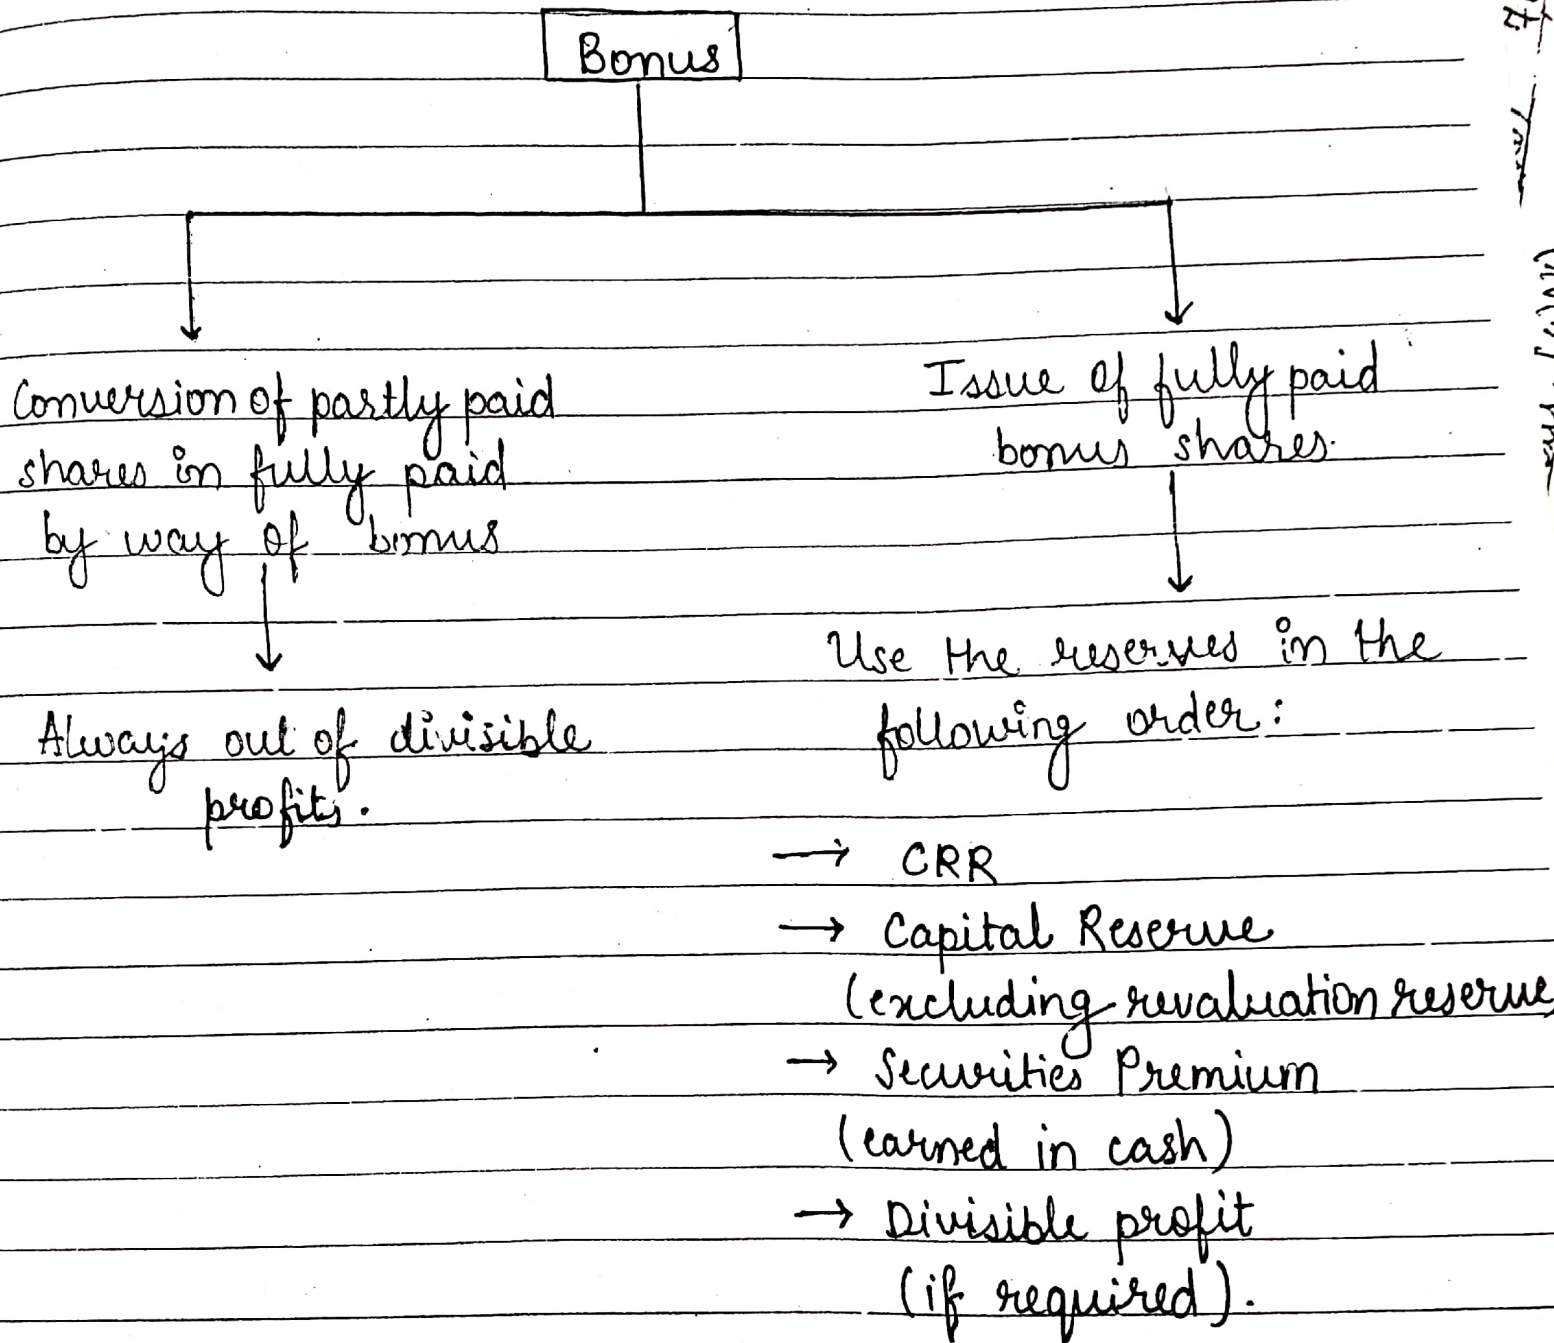 Bonus
Conversion of partly paid
shares in fully paid
by way of bonus
Always out of divisible
profits.
Issue of fully paid
bonus shares.
Use the reserves in the
following order:
→ CRR
→ Capital Reserve
(excluding revaluation reserve
→ Securities Premium
(earned in cash)
→ Divisible profit
(if required).